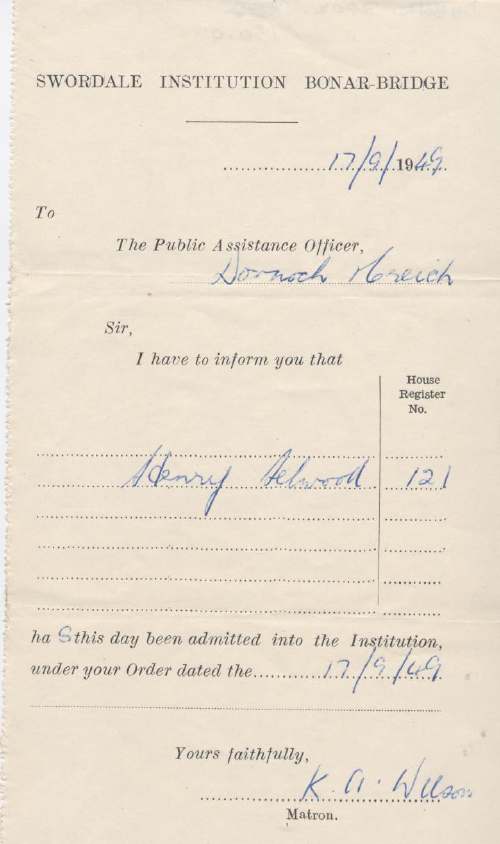 SWORDALE INSTITUTION BONAR-BRIDGE
17/9/1949.
To
The Public Assistance Officer,
Dornoch Creich
Sir,
I have to inform you that
House
Register
No.
Henry 121
has this day been admitted into the Institution,
under your Order dated the 17/9/49
Yours faithfully,
K. A. Wilson
Matron.